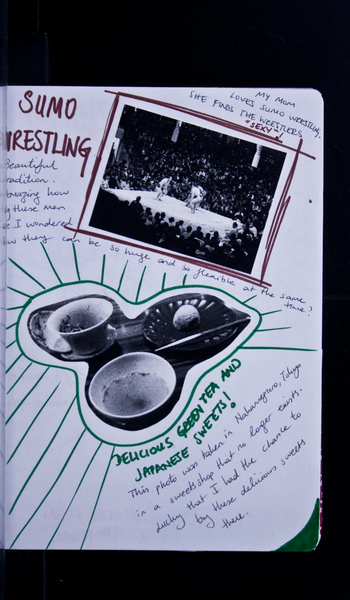 SUMO
WRESTLING
MY MOM
LOVES SUMO WRESTLING.
SHE FINDS THE WRESTLERS
"SEXY"!
Beautiful
tradition.
Amazing how
these men
I wondered
how they can be so huge and so flexible at the same
time?
DELICIOUS GREEN TEA AND
JAPANESE SWEETS!
This photo was taken in Nakameguro, Tokyo
in a sweetshop that no longer exists.
Lucky that I had the chance to
try these delicious sweets
there.